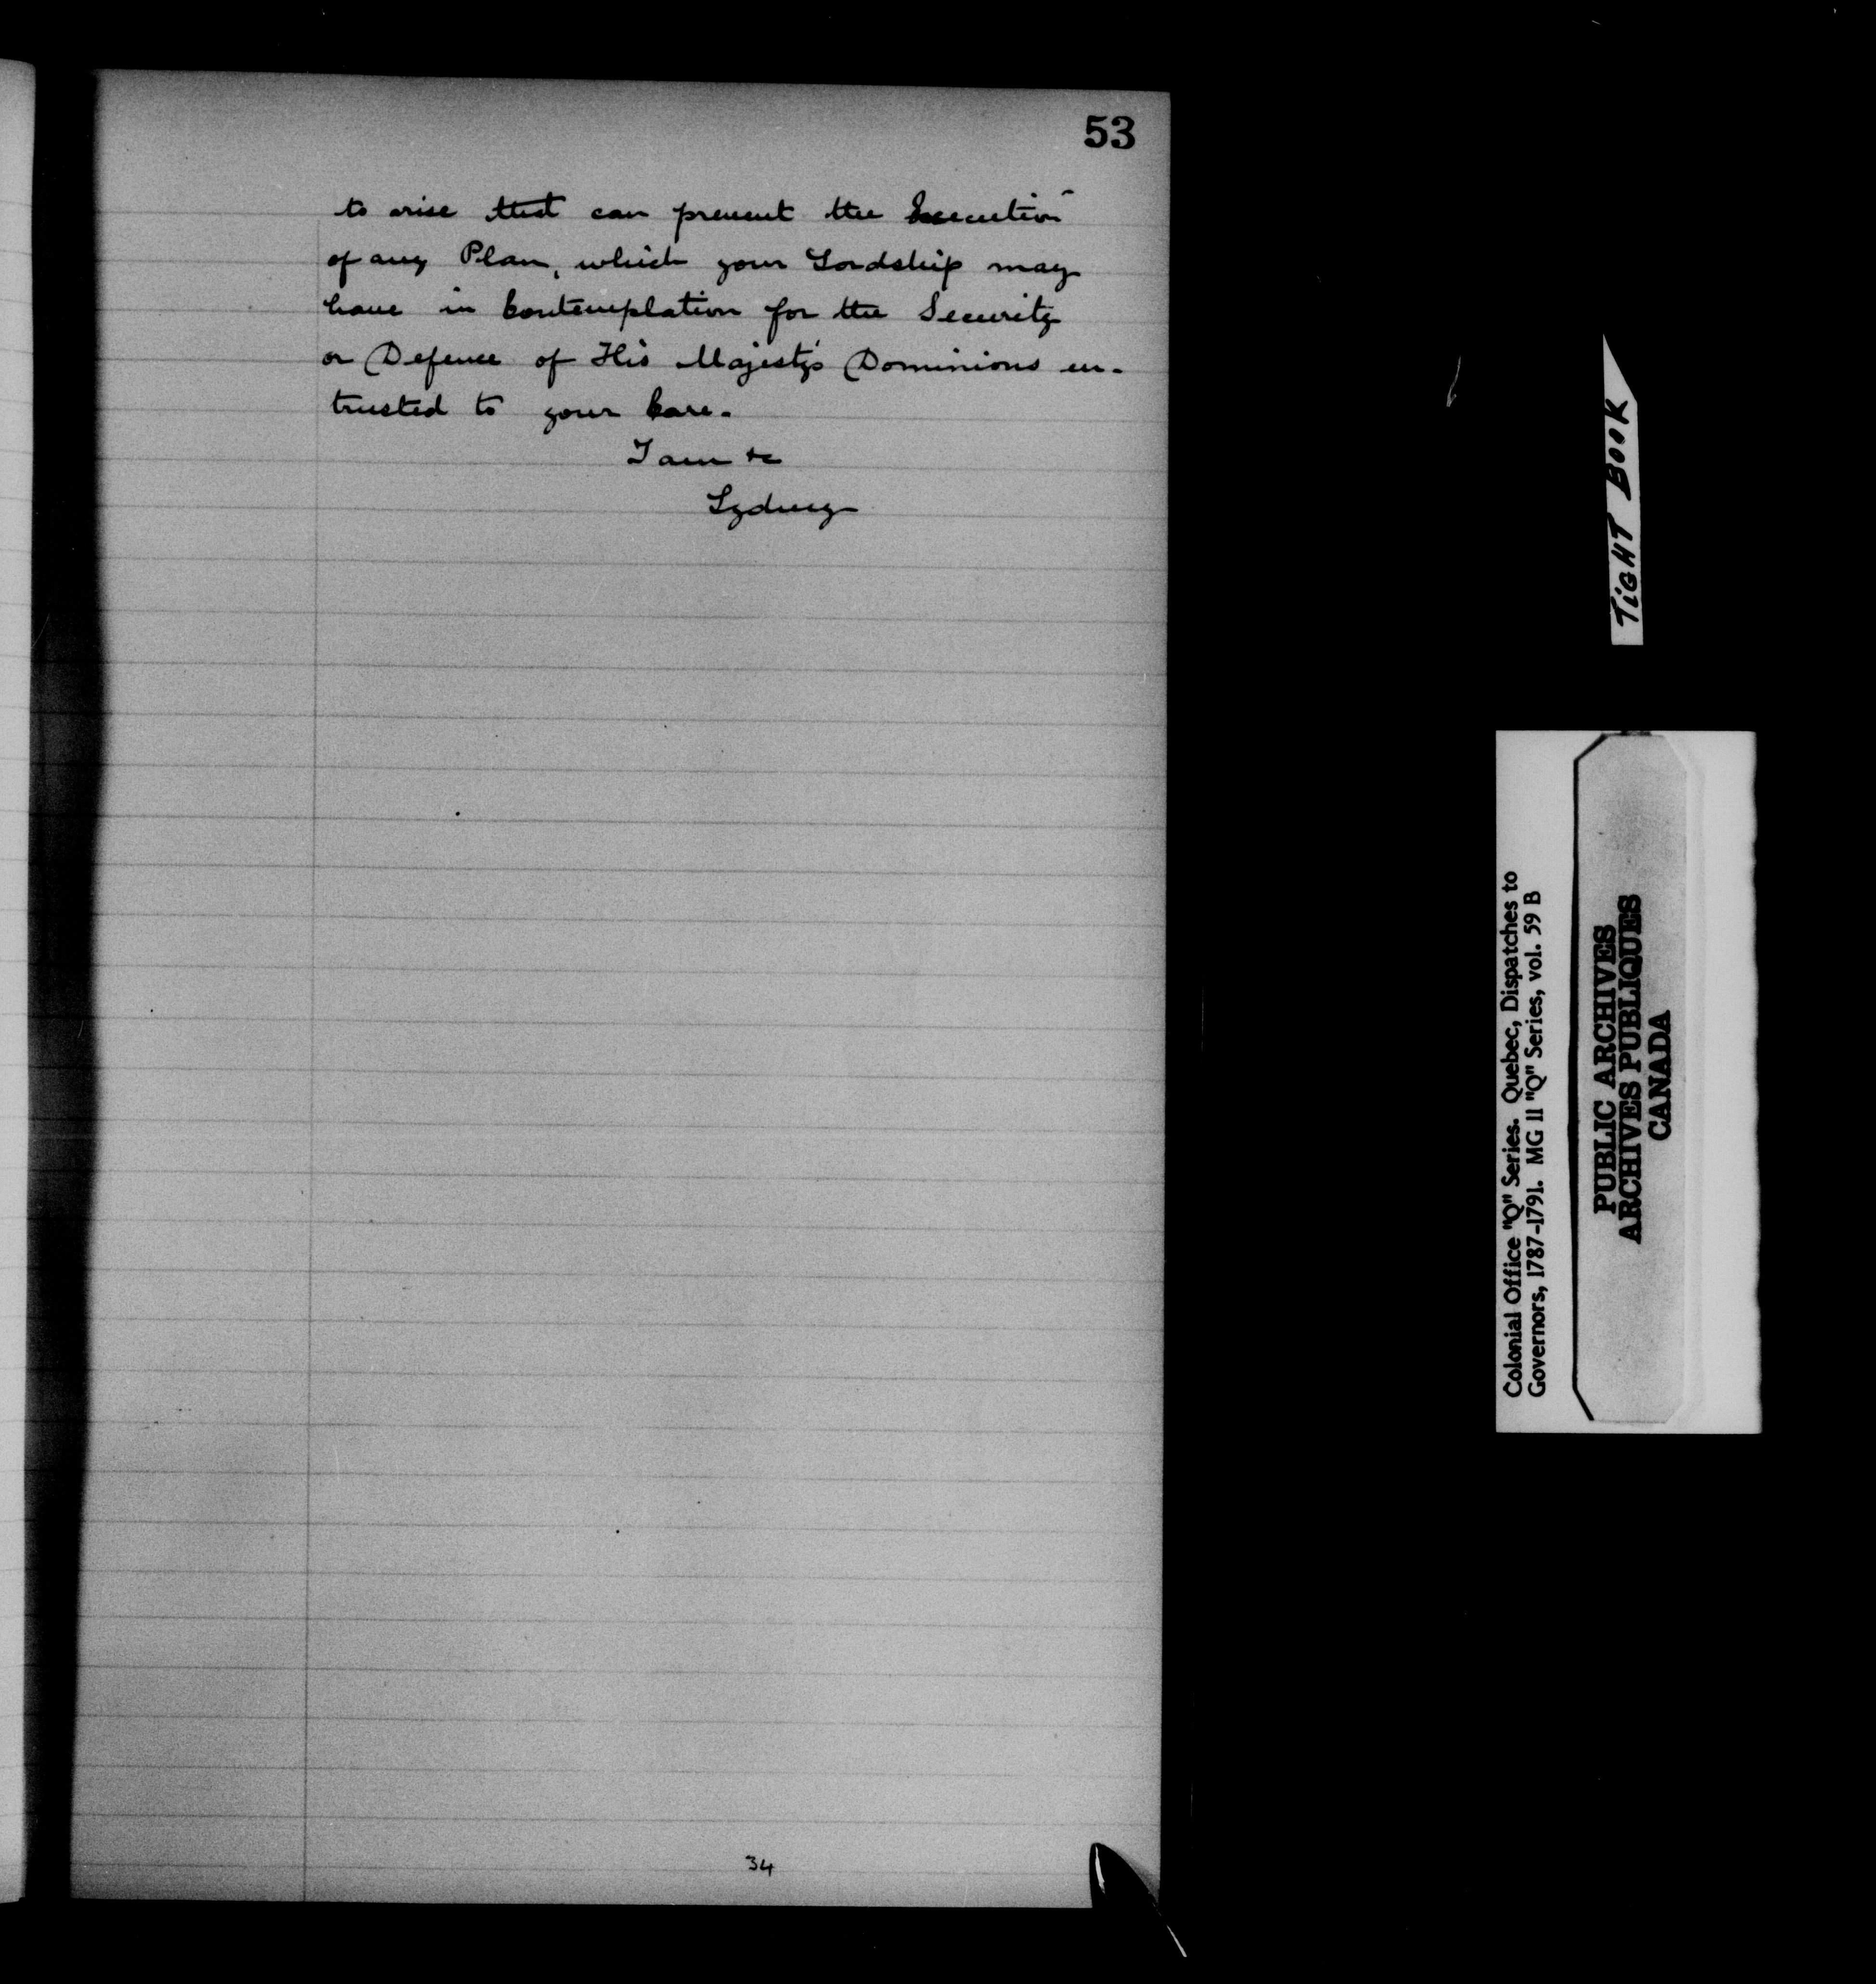 53
to arise that can prevent the Execution
of any Plan, which your Lordship may
have in Contemplation for the Security
or Defence of His Majesty's Dominions en-
trusted to your Care.
I am &c
Sydney
34
TIGHT BOOK
Colonial Office "Q" Series. Quebec, Dispatches to
Governors, 1787-1791. MG 11 "Q" Series, vol. 59 B
PUBLIC ARCHIVES
ARCHIVES PUBLIQUES
CANADA